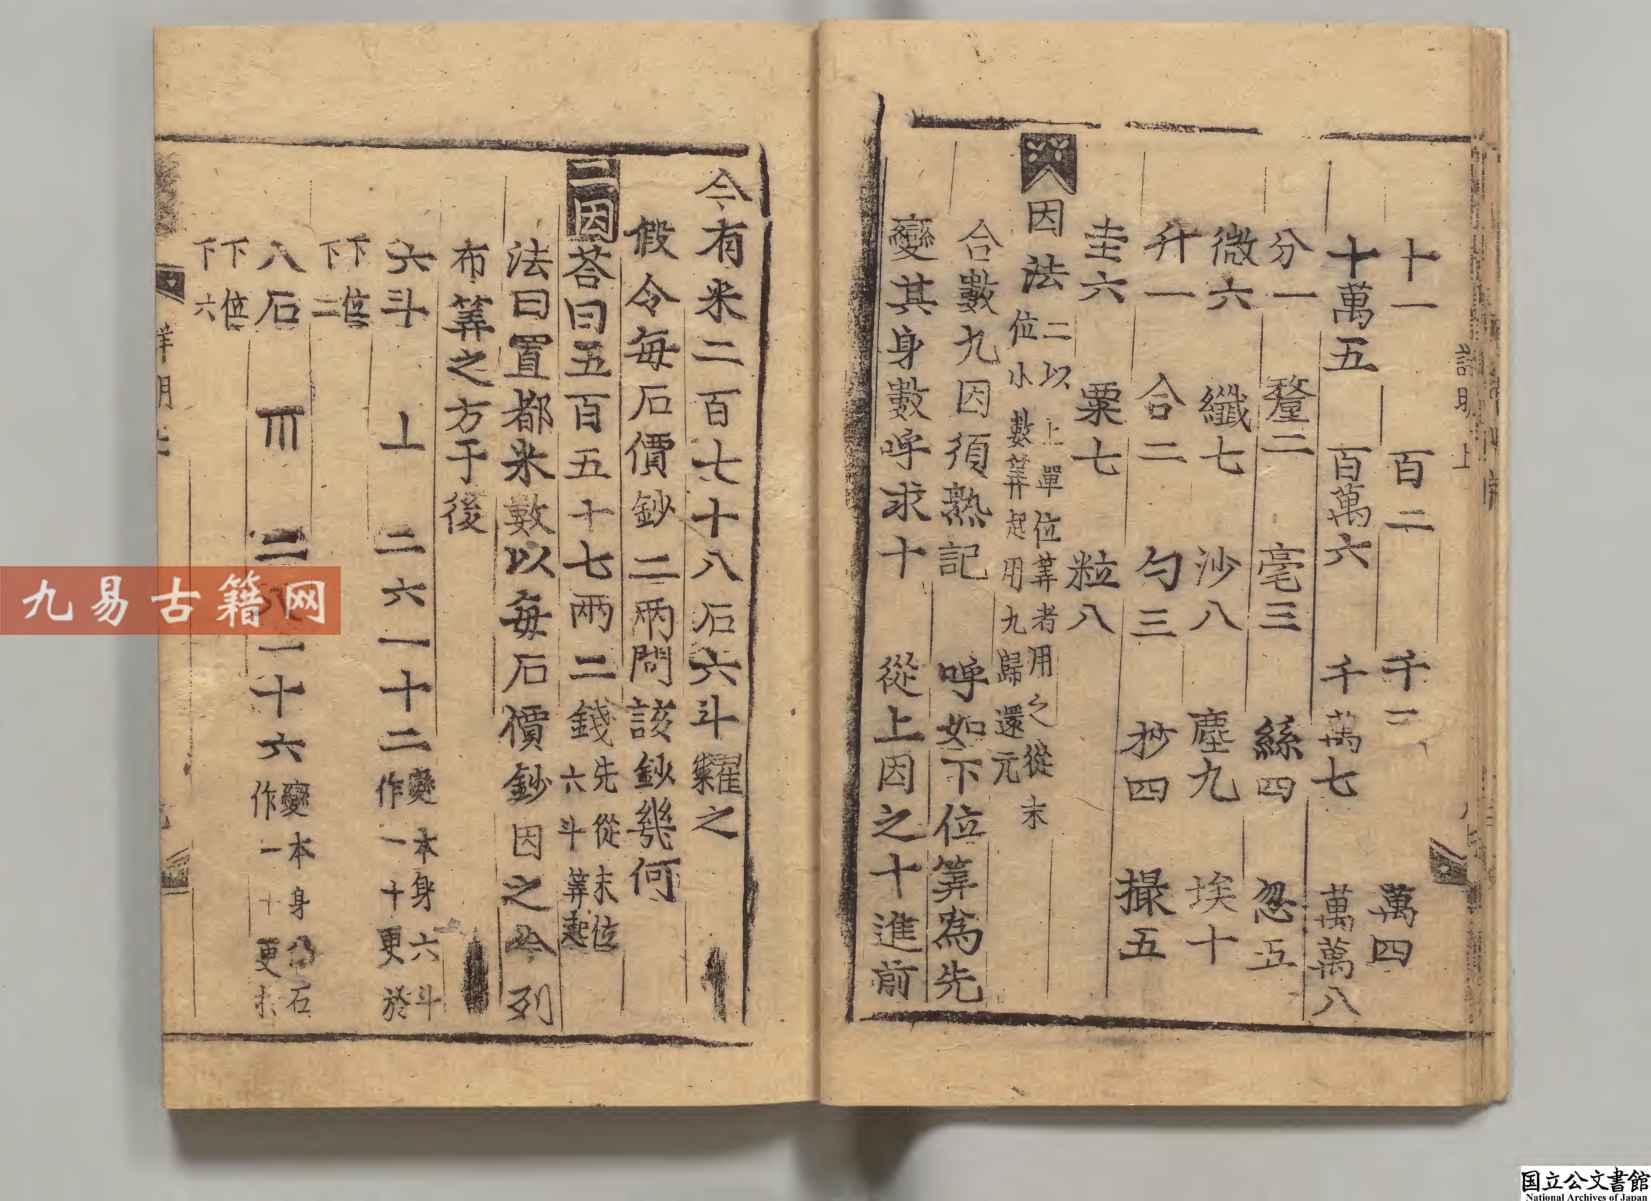 十一 百二 千三 萬四
十萬五 百萬六 千萬七 萬萬八
分一 釐二 毫三 絲四 忽五
微六 纖七 沙八 塵九 埃十
升一 合二 勺三 抄四 撮五
圭六 粟七 粒八
因法 二以上單位筭者用之從末
位小數筭起用九歸還元
合數九因須熟記 呼如下位筭為先
變其身數呼求十 從上因之十進前
今有米二百七十八石六斗糶之
假令每石價鈔二兩問該鈔幾何
二因 荅曰五百五十七兩二錢 先從末位
六斗筭起
法曰置都米數以每石價鈔因之今列
布筭之方于後
六斗 丄 二六一十二 變本身六斗
作一十更於
下位
下二
八石 二八一十六 變本身八石
作一十更於
下位
下六
詳明上
九易古籍网
国立公文書館
National Archives of Japan